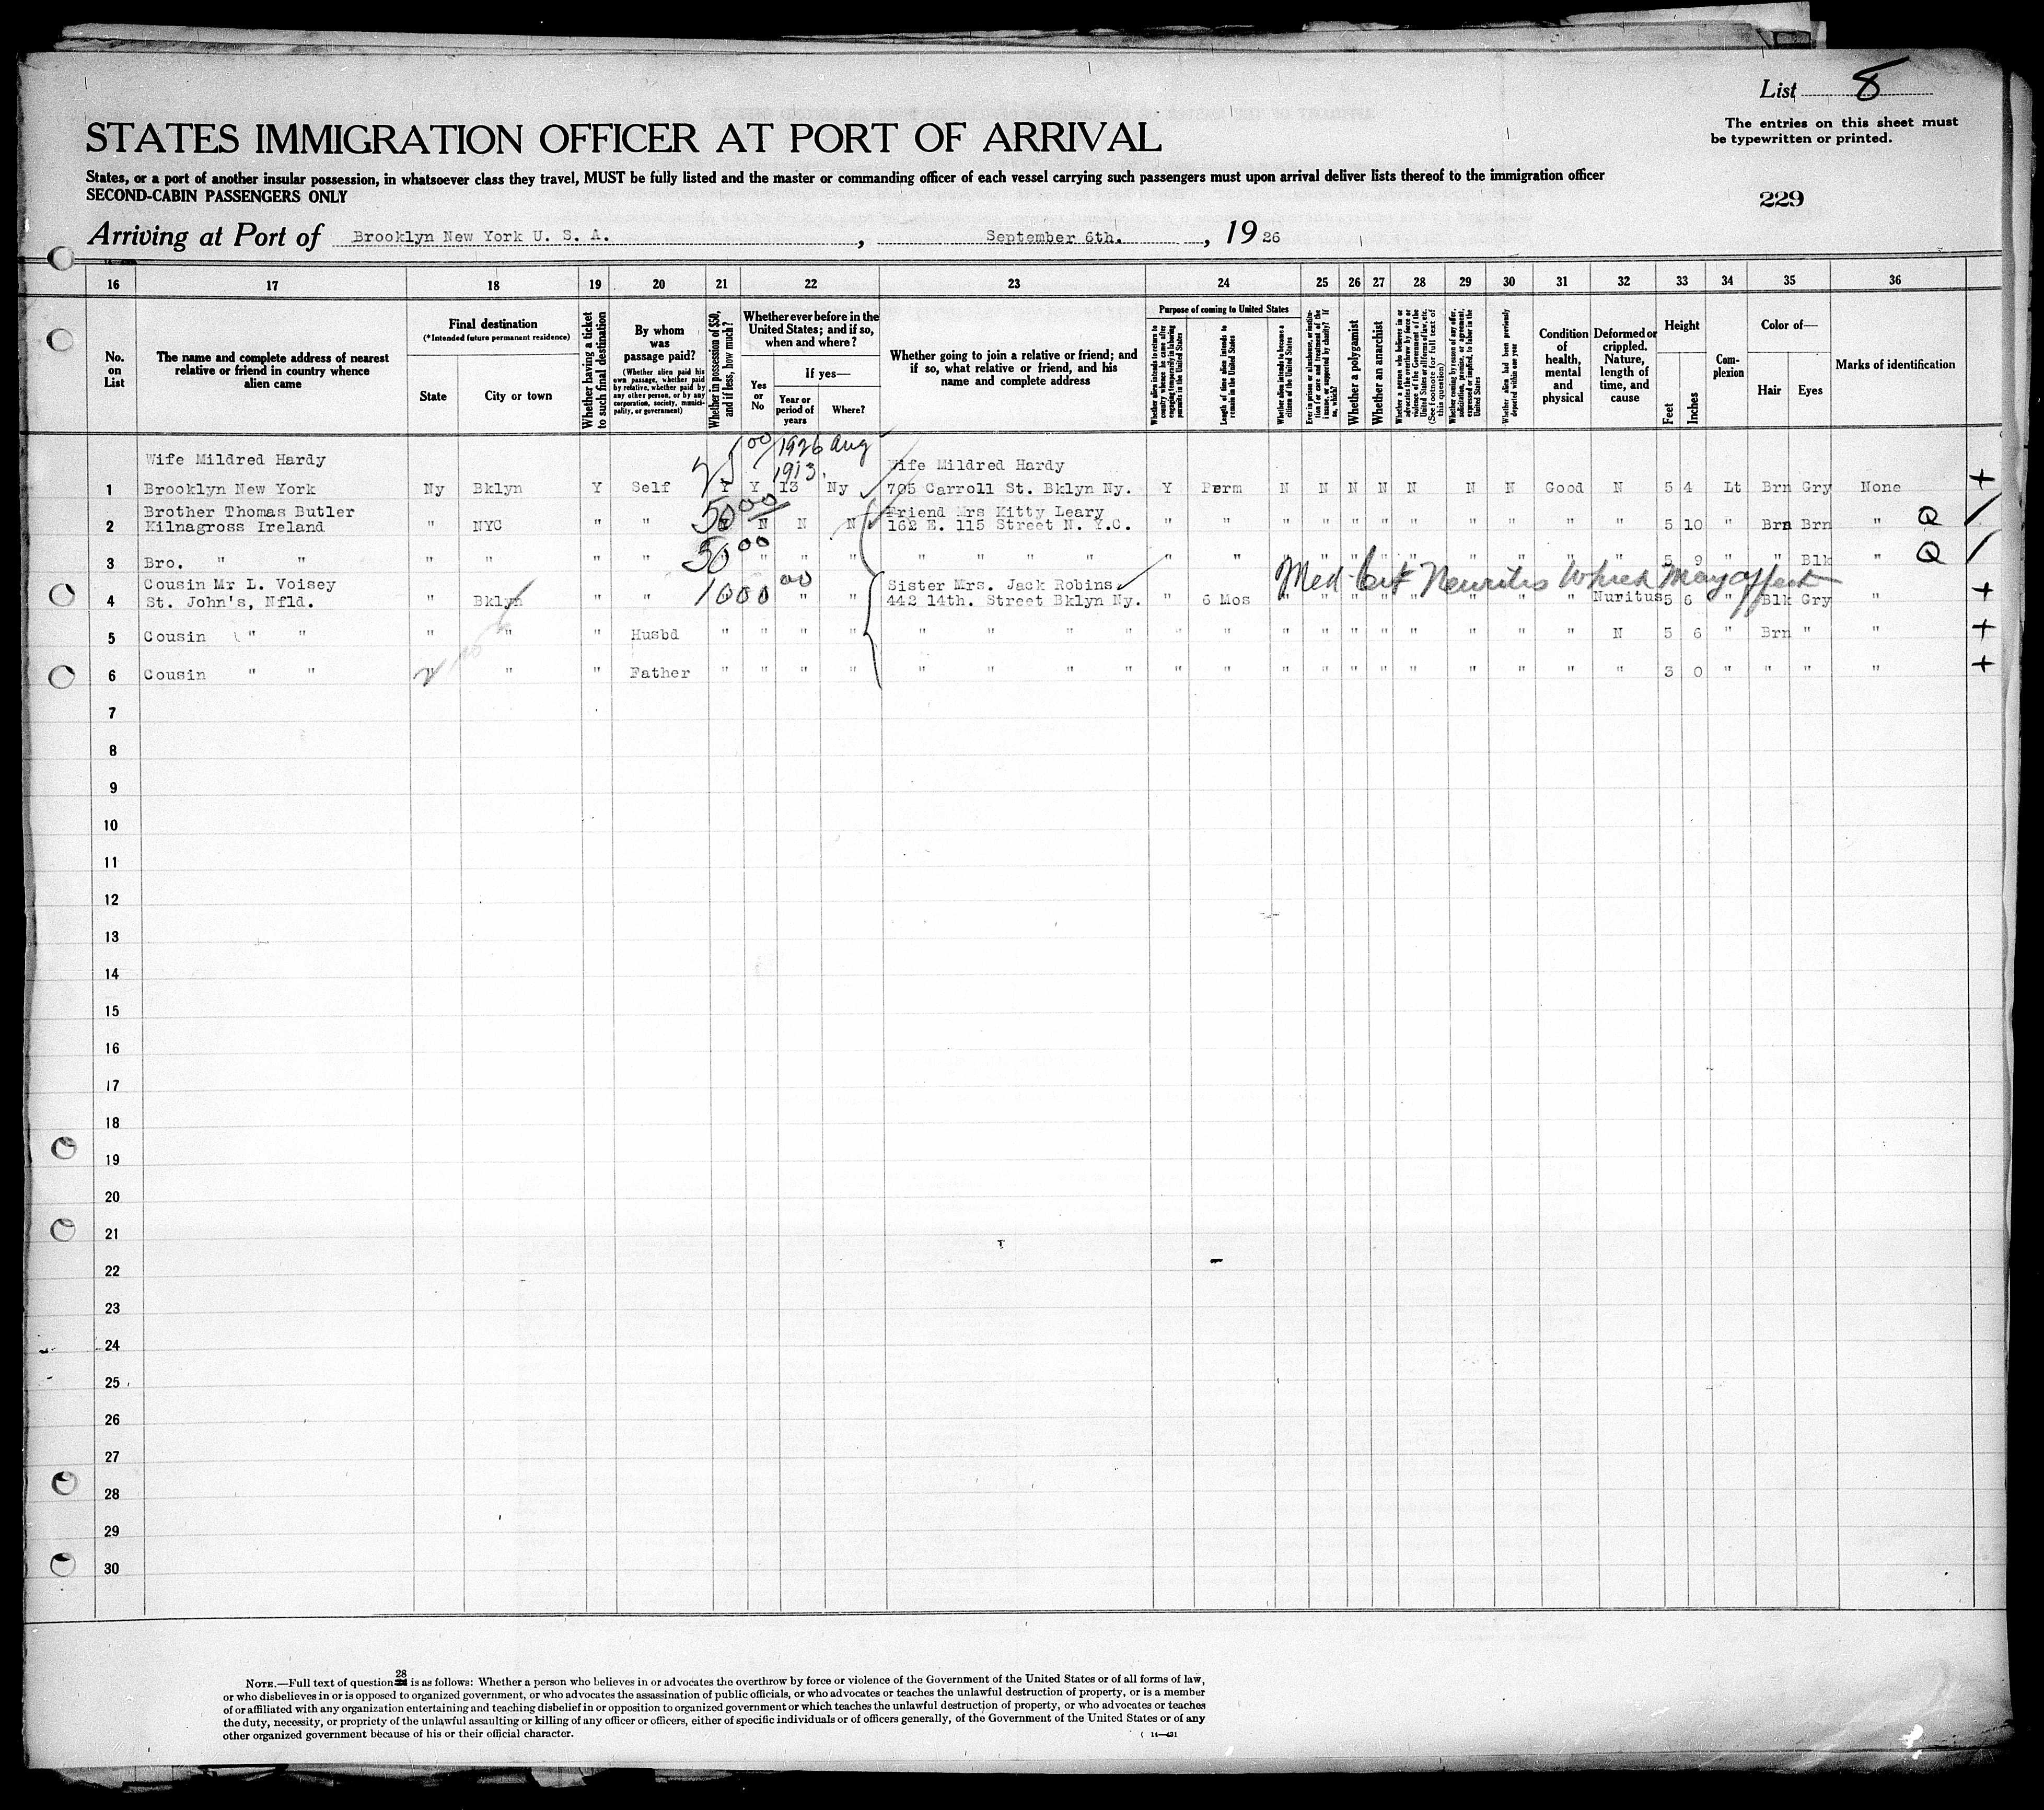 List 8
The entries on this sheet must
be typewritten or printed.
STATES IMMIGRATION OFFICER AT PORT OF ARRIVAL
States, or a port of another insular possession, in whatsoever class they travel, MUST be fully listed and the master or commanding officer of each vessel carrying such passengers must upon arrival deliver lists thereof to the immigration officer
SECOND-CABIN PASSENGERS ONLY
229
Arriving at Port of Brooklyn New York U. S. A. , September 6th. , 1926
16 17 18 19 20 21 22 23 24 25 26 27 28 29 30 31 32 33 34 35 36
No. on List
The name and complete address of nearest relative or friend in country whence alien came
Final destination
(*Intended future permanent residence)
State
City or town
Whether having a ticket to such final destination
By whom was passage paid?
(Whether alien paid his own passage, whether paid by relative, whether paid by any other person, or by any corporation, society, municipality, or government)
Whether in possession of $50, and if less, how much?
Whether ever before in the United States; and if so, when and where?
Yes or No
If yes—
Year or period of years
Where?
Whether going to join a relative or friend; and if so, what relative or friend, and his name and complete address
Purpose of coming to United States
Whether alien intends to return to country whence he came after engaging temporarily in laboring pursuits in the United States
Length of time alien intends to remain in the United States
Whether alien intends to become a citizen of the United States
Ever in prison or almshouse, or institution for care and treatment of the insane, or supported by charity? If so, which?
Whether a polygamist
Whether an anarchist
Whether a person who believes in or advocates the overthrow by force or violence of the Government of the United States or all forms of law, etc. (See footnote for full text of this question)
Whether coming by reason of any offer, solicitation, promise, or agreement, expressed or implied, to labor in the United States
Whether alien had been previously deported within one year
Condition of health, mental and physical
Deformed or crippled. Nature, length of time, and cause
Height
Feet
Inches
Complexion
Color of—
Hair
Eyes
Marks of identification
25 00 1926 Aug
1913
Wife Mildred Hardy Wife Mildred Hardy
1 Brooklyn New York Ny Bklyn Y Self Y Y 13 Ny 705 Carroll St. Bklyn Ny. Y Perm N N N N N N N Good N 5 4 Lt Brn Gry None +
Brother Thomas Butler 50 00 Friend Mrs Kitty Leary
2 Kilnagross Ireland " NYC " " Y N N N 162 E. 115 Street N. Y.C. " " " " " " " " " " " 5 10 " Brn Brn " Q /
3 Bro. " " " " " " 50 00 " " " " " " " " " " " " " " " " " " " 5 9 " " Blk " Q /
Med Cert Neuritis which may affect
Cousin Mr L. Voisey 1000 00 Sister Mrs. Jack Robins
4 St. John's, Nfld. " Bklyn " " " " " 442 14th. Street Bklyn Ny. " 6 Mos " " " " " " " " Nuritus 5 6 " Blk Gry " +
5 Cousin " " " " " Husbd " " " " " " " " " " " " " " " " " " " N 5 6 " Brn " " +
6 Cousin " " " " Father " " " " " " " " " " " " " " " " " " " " 3 0 " " " " +
7
8
9
10
11
12
13
14
15
16
17
18
19
20
21
22
23
24
25
26
27
28
29
30
28
NOTE.—Full text of question is as follows: Whether a person who believes in or advocates the overthrow by force or violence of the Government of the United States or of all forms of law,
or who disbelieves in or is opposed to organized government, or who advocates the assassination of public officials, or who advocates or teaches the unlawful destruction of property, or is a member
of or affiliated with any organization entertaining and teaching disbelief in or opposition to organized government or which teaches the unlawful destruction of property, or who advocates or teaches
the duty, necessity, or propriety of the unlawful assaulting or killing of any officer or officers, either of specific individuals or of officers generally, of the Government of the United States or of any
other organized government because of his or their official character.
14—431